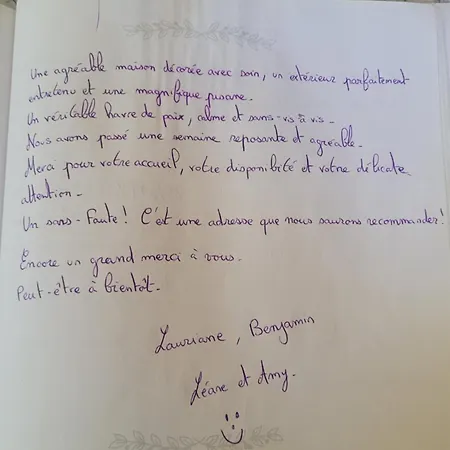 Une agréable maison décorée avec soin, un extérieur parfaitement
entretenu et une magnifique piscine.
Un véritable havre de paix, calme et sans-vis à vis.
Nous avons passé une semaine reposante et agréable.
Merci pour votre accueil, votre disponibilité et votre délicate
attention.
Un sans-Faute! C'est une adresse que nous saurons recommander!
Encore un grand merci à vous.
Peut-être à bientôt.
Lauriane, Benjamin
Léane et Amy.